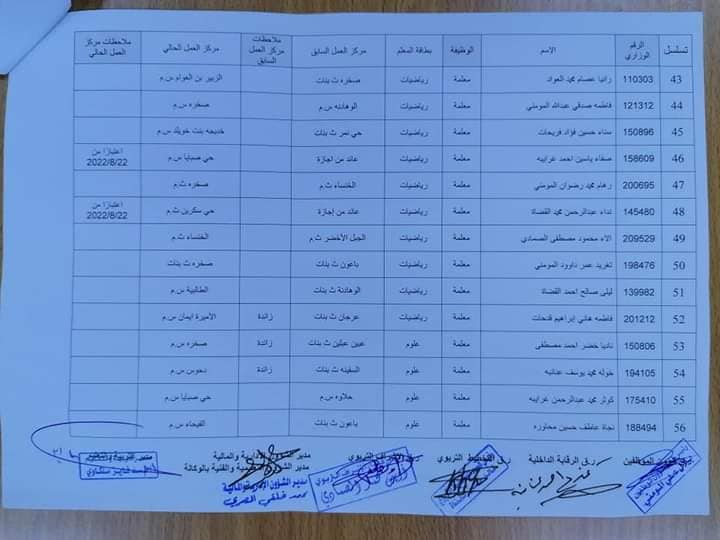 تسلسل الرقم الوزاري الاسم الوظيفة بطاقة المعلم مركز العمل السابق ملاحظات مركز العمل السابق مركز العمل الحالي ملاحظات مركز العمل الحالي
43 110303 رانيا عصام محمد العواد معلمة رياضيات صخره ث بنات الزبير بن العوام س.م
44 121312 فاطمه صدقي عبدالله المومني معلمة رياضيات الوهادنه س.م صخره س.م
45 150896 سناء حسين فؤاد فريحات معلمة رياضيات حي نمر ث بنات خديجه بنت خويلد س.م
46 158609 صفاء ياسين احمد غرايبه معلمة رياضيات عائد من اجازة حي صبايا س.م اعتبارا من 2022/8/22
47 200695 رهام محمد رضوان المومني معلمة رياضيات الخنساء ث.م صخره ث.م
48 145480 نداء عبدالرحمن محمد القضاة معلمة رياضيات عائد من إجازة حي سكرين ث.م اعتبارا من 2022/8/22
49 209529 الاء محمود مصطفى الصمادي معلمة رياضيات الجبل الأخضر ث م الخنساء ث.م
50 198476 تغريد عمر داوود المومني معلمة رياضيات باعون ث بنات صخره ث بنات
51 139982 ليلى صالح احمد القضاة معلمة رياضيات الوهادنة ث بنات الطالبية س.م
52 201212 فاطمه هاني إبراهيم قدحات معلمة رياضيات عرجان ث بنات زائدة الأميرة ايمان س.م
53 150806 ناديا خضر احمد مصطفى معلمة علوم عبين عبلين ث بنات زائدة صخره س.م
54 194105 خوله محمد يوسف عنانبه معلمة علوم السفينه ث بنات زائدة دحوس س.م
55 175410 كوثر محمد عبدالرحمن غرايبه معلمة علوم حلاوه س.م حي صبايا س.م
56 188494 نجاة عاطف حسين محاوره معلمة علوم باعون ث بنات الفيحاء س.م
ر.ق الرقابة الداخلية التربوي التربوي مدير الشؤون الإدارية والمالية مدير التربية والتعليم
مدير الشؤون والفنية بالوكالة
مدير الشؤون الإدارية والمالية